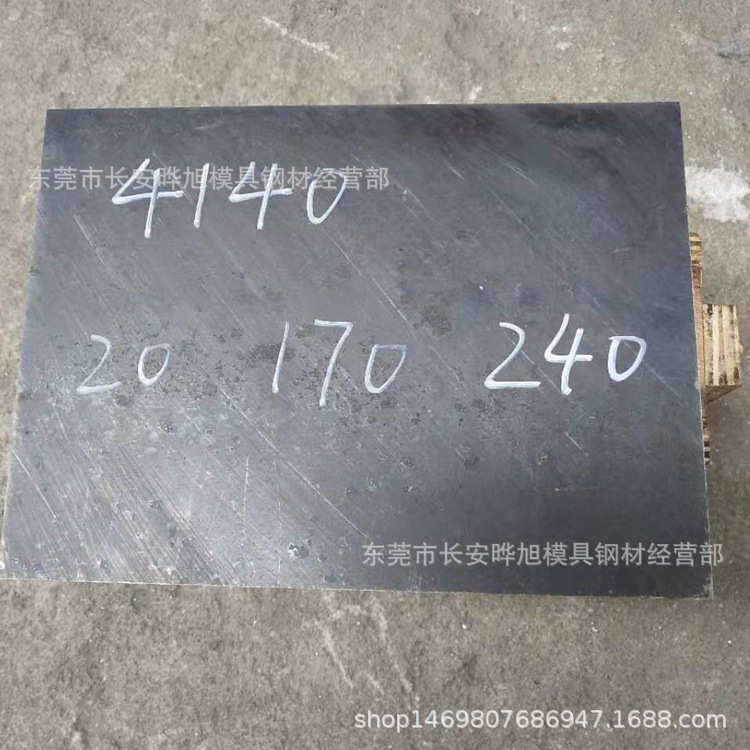 东莞市长安晔旭模具钢材经营部
4140
20 170 240
东莞市长安晔旭模具钢材经营部
shop1469807686947.1688.com